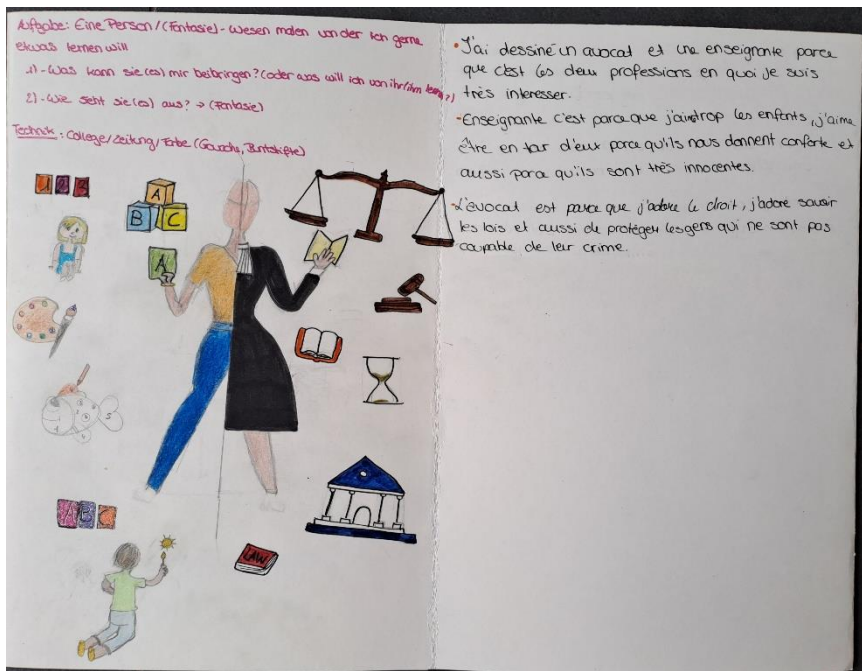 Aufgabe: Eine Person/(Fantasie)-Wesen malen von der ich gerne
etwas lernen will
1)-Was kann sie(es) mir beibringen? (oder was will ich von ihr/ihm lernen?)
2)-Wie seht sie(es) aus? → (Fantasie)
Technik: College/Zeitung/Farbe (Gouache, Buntstifte)
1 2 3
A
B C
A
ABC
LAW
•J'ai dessiné un avocat et une enseignante parce
que c'est les deux professions en quoi je suis
très interesser.
-Enseignante c'est parce que j'aime trop les enfants, j'aime
être en tour d'eux parce qu'ils nous donnent conforte et
aussi parce qu'ils sont très innocentes.
•L'avocat est parce que j'adore le droit, j'adore savoir
les lois et aussi de protéger les gens qui ne sont pas
coupable de leur crime.